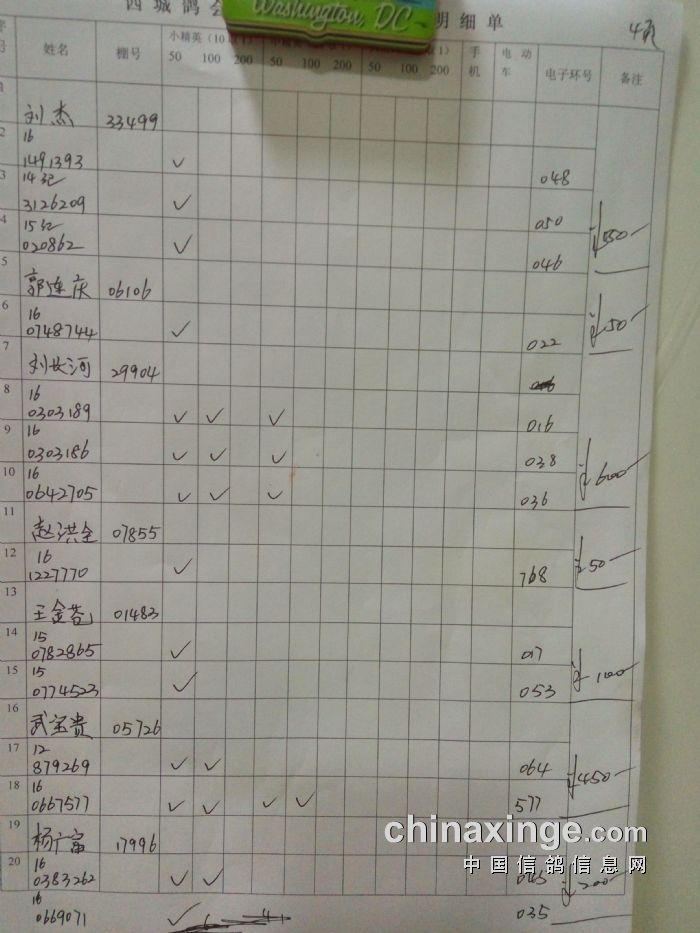 Washington, DC
西城鸽会 明细单 4页
姓名 棚号 小精英（10 50 100 200 50 100 200 50 100 200 手机 电动车 电子环号 备注
刘杰 33499
2 16 1491393 ✓ 048
3 14 3126209 ✓ 050
4 15 020862 ✓ 046
5 郭连庆 06106
6 16 0748744 ✓ 022 50
7 刘长河 29904
8 16 0303189 ✓ ✓ ✓ 016
9 16 0303186 ✓ ✓ ✓ 038
10 16 0642705 ✓ ✓ ✓ 036 600
11 赵洪全 07855
12 16 1227770 ✓ 768 50
13 王金 01483
14 15 0782865 ✓ 017
15 15 0774523 ✓ 053 100
16 武宝贵 05726
17 12 879269 ✓ ✓ 064 450
18 16 0667577 ✓ ✓ ✓ ✓ 577
19 杨广富 17996
20 16 0383262 ✓ ✓ 045 200
16 0669071 ✓ 035
chinaxinge.com
中国信鸽信息网